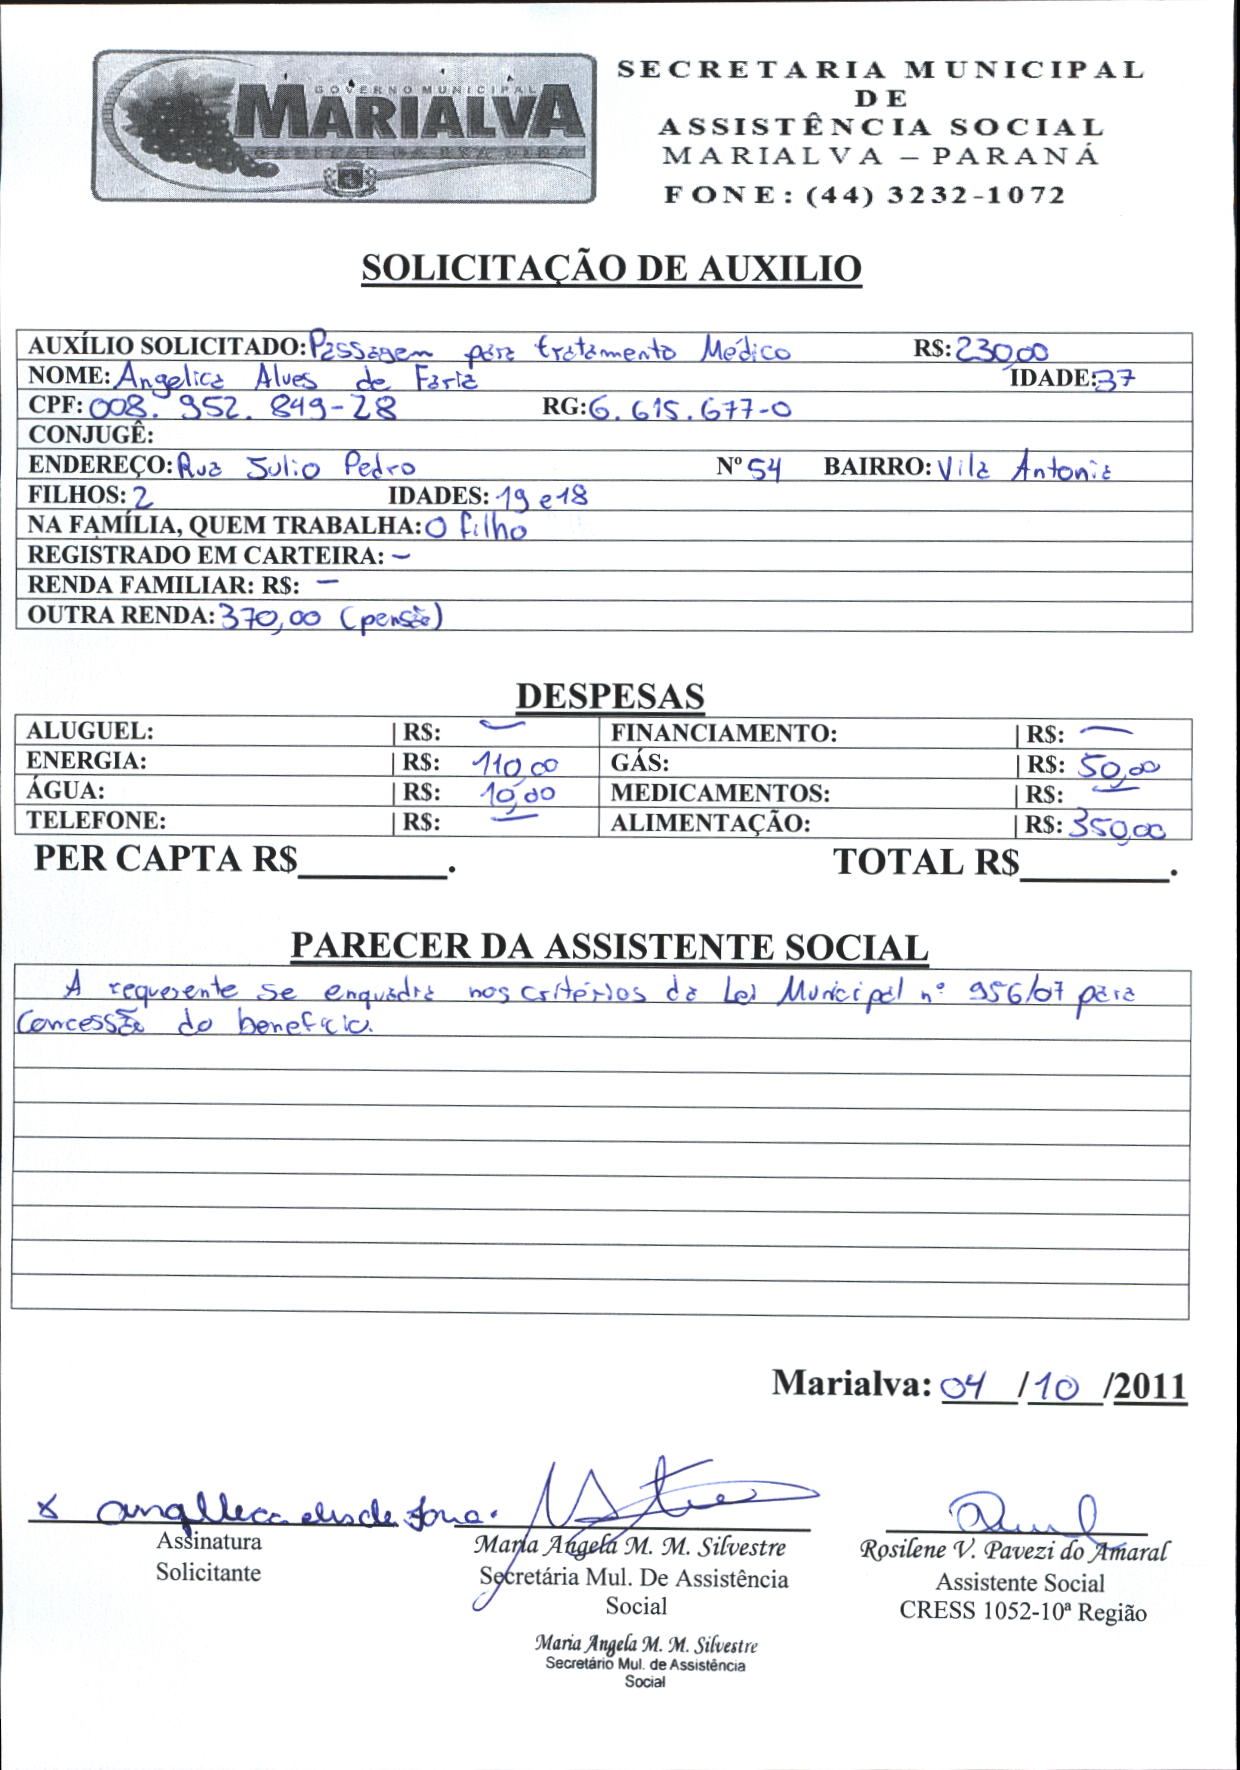 GOVERNO MUNICIPAL
MARIALVA
CAPITAL DA UVA FINA
SECRETARIA MUNICIPAL
DE
ASSISTÊNCIA SOCIAL
MARIALVA – PARANÁ
FONE: (44) 3232-1072
SOLICITAÇÃO DE AUXILIO
AUXÍLIO SOLICITADO: Passagem para tratamento Médico R$: 230,00
NOME: Angelica Alves de Faria IDADE: 37
CPF: 008. 952. 849-28 RG: 6.615.677-0
CONJUGÊ:
ENDEREÇO: Rua Julio Pedro Nº 54 BAIRRO: Vila Antonia
FILHOS: 2 IDADES: 19 e 18
NA FAMÍLIA, QUEM TRABALHA: O filho
REGISTRADO EM CARTEIRA: –
RENDA FAMILIAR: R$: –
OUTRA RENDA: 370,00 (pensão)
DESPESAS
ALUGUEL: | R$: – FINANCIAMENTO: | R$: –
ENERGIA: | R$: 110,00 GÁS: | R$: 50,00
ÁGUA: | R$: 10,00 MEDICAMENTOS: | R$: –
TELEFONE: | R$: – ALIMENTAÇÃO: | R$: 350,00
PER CAPTA R$________. TOTAL R$________.
PARECER DA ASSISTENTE SOCIAL
A requerente se enquadra nos critérios da Lei Municipal nº 956/07 para
concessão do benefício.
Marialva: 04 /10 /2011
x
Assinatura
Solicitante
Maria Angela M. M. Silvestre
Secretária Mul. De Assistência
Social
Maria Angela M. M. Silvestre
Secretário Mul. de Assistência
Social
Rosilene V. Pavezi do Amaral
Assistente Social
CRESS 1052-10ª Região